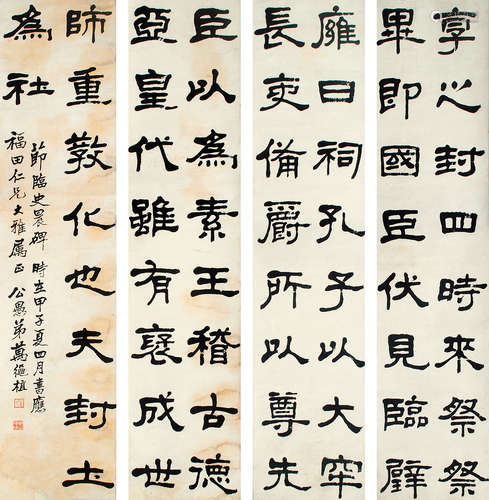 享之封四時來祭祭
畢即國臣伏見臨辟
廱日祠孔子以大牢
長吏備爵所以尊先
臣以為素王稽古德
亞皇代雖有褒成世
師重教化也夫封土
為社
節臨史晨碑 時在甲子夏四月書應
福田仁兄大雅屬正 公愚弟萬繩